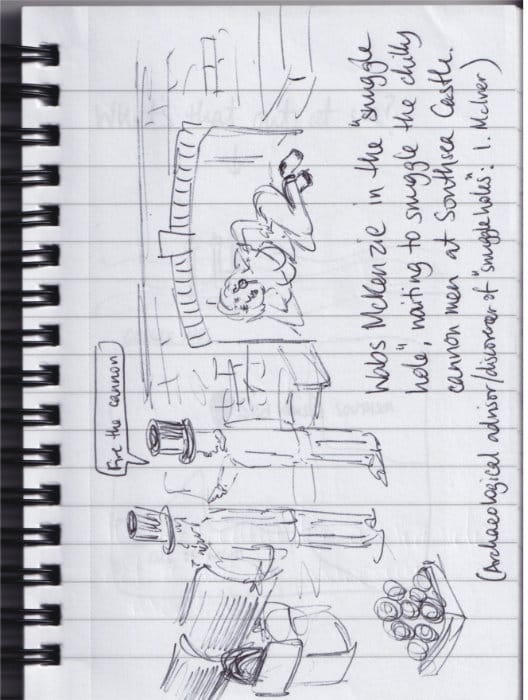 Fire the cannon
Wabs McKenzie in the "snuggle
hole", waiting to snuggle the chilly
cannon men at Southsea Castle.
(Archaeological advisor/discoverer of "snuggle holes": I. McIver)